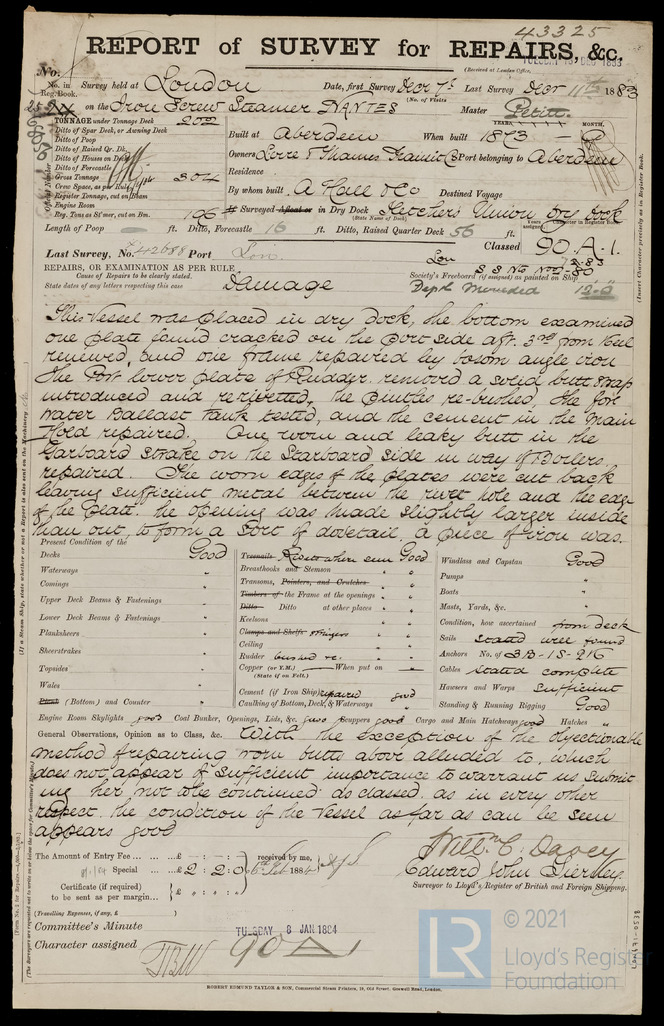 43325
REPORT of SURVEY for REPAIRS, &c.
(Received at London Office,
TUESDAY 18 DEC 1883
No.
No. in Reg. Book. Survey held at London Date, first Survey Decr 7th Last Survey Decr 11th 1883
(No. of Visits
on the Iron Screw Steamer NANTES Master Petitt
TONNAGE under Tonnage Deck
Ditto of Spar Deck, or Awning Deck
Ditto of Poop
Ditto of Raised Qr. Dk.
Ditto of Houses on Deck
Ditto of Forecastle
Gross Tonnage 304
Crew Space, as per Rule
Register Tonnage, cut on Beam
Engine Room
Reg. Tons as St'mer, cut on Bm. 196
YEARS. MONTH.
Built at Aberdeen When built 1873
Owners Lorre & Thames Transit Co Port belonging to Aberdeen
Residence
By whom built A Hall & Co Destined Voyage
If Surveyed Afloat or in Dry Dock Fletchers Union Dry Dock
(State Name of Dock)
Length of Poop ft. Ditto, Forecastle 16 ft. Ditto, Raised Quarter Deck 56 ft.
Last Survey, No. 42688 Port Lon. Classed 90.A.1.
REPAIRS, OR EXAMINATION AS PER RULE
Cause of Repairs to be clearly stated.
State dates of any letters respecting this case
Damage
Lon
Society's Freeboard (if assigned) as painted on Ship
Depth Moulded 12.0
This Vessel was placed in dry dock, the bottom examined
one plate found cracked on the port side aft. 3rd from keel
renewed, and one frame repaired by bosom angle iron
the Port lower plate of Rudder. removed a solid butt strap
introduced and reriveted, the pintles re-bushed, the fore
water Ballast Tank tested, and the cement in the Main
Hold repaired. One worn and leaky butt in the
Garboard strake on the Starboard side in way of Boilers
repaired. The worn edges of the plates were cut back
leaving sufficient metal between the rivet hole and the edge
of the plate. the opening was made slightly larger inside
than out, to form a sort of dovetail, a piece of iron was.
Present Condition of the
Decks Good
Waterways "
Comings "
Upper Deck Beams & Fastenings "
Lower Deck Beams & Fastenings "
Planksheers "
Sheerstrakes "
Topsides "
Wales "
(Bottom) and Counter "
Treenails Rivets when seen Good
Breasthooks and Stemson " "
Transoms, Pointers, and Crutches " "
Timbers of the Frame at the openings " "
Ditto Ditto at other places " "
Keelsons " "
Clamps and Shelfs stringers "
Ceiling "
Rudder bushed &c. "
Copper (or Y.M.) When put on
(State if on Felt.)
Cement (if Iron Ship) repaired good
Caulking of Bottom, Deck, & Waterways "
Windlass and Capstan Good
Pumps "
Boats "
Masts, Yards, &c. "
Condition, how ascertained from deck
Sails stated well found
Anchors No. of 3B-1S-2K
Cables stated complete
Hawsers and Warps sufficient
Standing & Running Rigging Good
Engine Room Skylights good Coal Bunker, Openings, Lids, &c. good Scuppers good Cargo and Main Hatchways good Hatches "
General Observations, Opinion as to Class, &c. With the exception of the objectionable
method of repairing worn butts above alluded to, which
does not appear of sufficient importance to warrant us submit
ing her not to be continued as classed. as in every other
respect, the condition of the Vessel as far as can be seen
appears good
The Amount of Entry Fee ... ... £ : : received by me,
Special ... ... £ 2 : 2 : 0 1884
Certificate (if required) to be sent as per margin ... £ : :
(Travelling Expenses, if any, £ )
Willm C. Davey
Edward John Tierney
Surveyor to Lloyd's Register of British and Foreign Shipping.
Committee's Minute TUESDAY 8 JAN 1884
Character assigned 90 A
ROBERT EDMUND TAYLOR & SON, Commercial Steam Printers, 19, Old Street, Goswell Road, London.
LR
© 2021
Lloyd's Register
Foundation